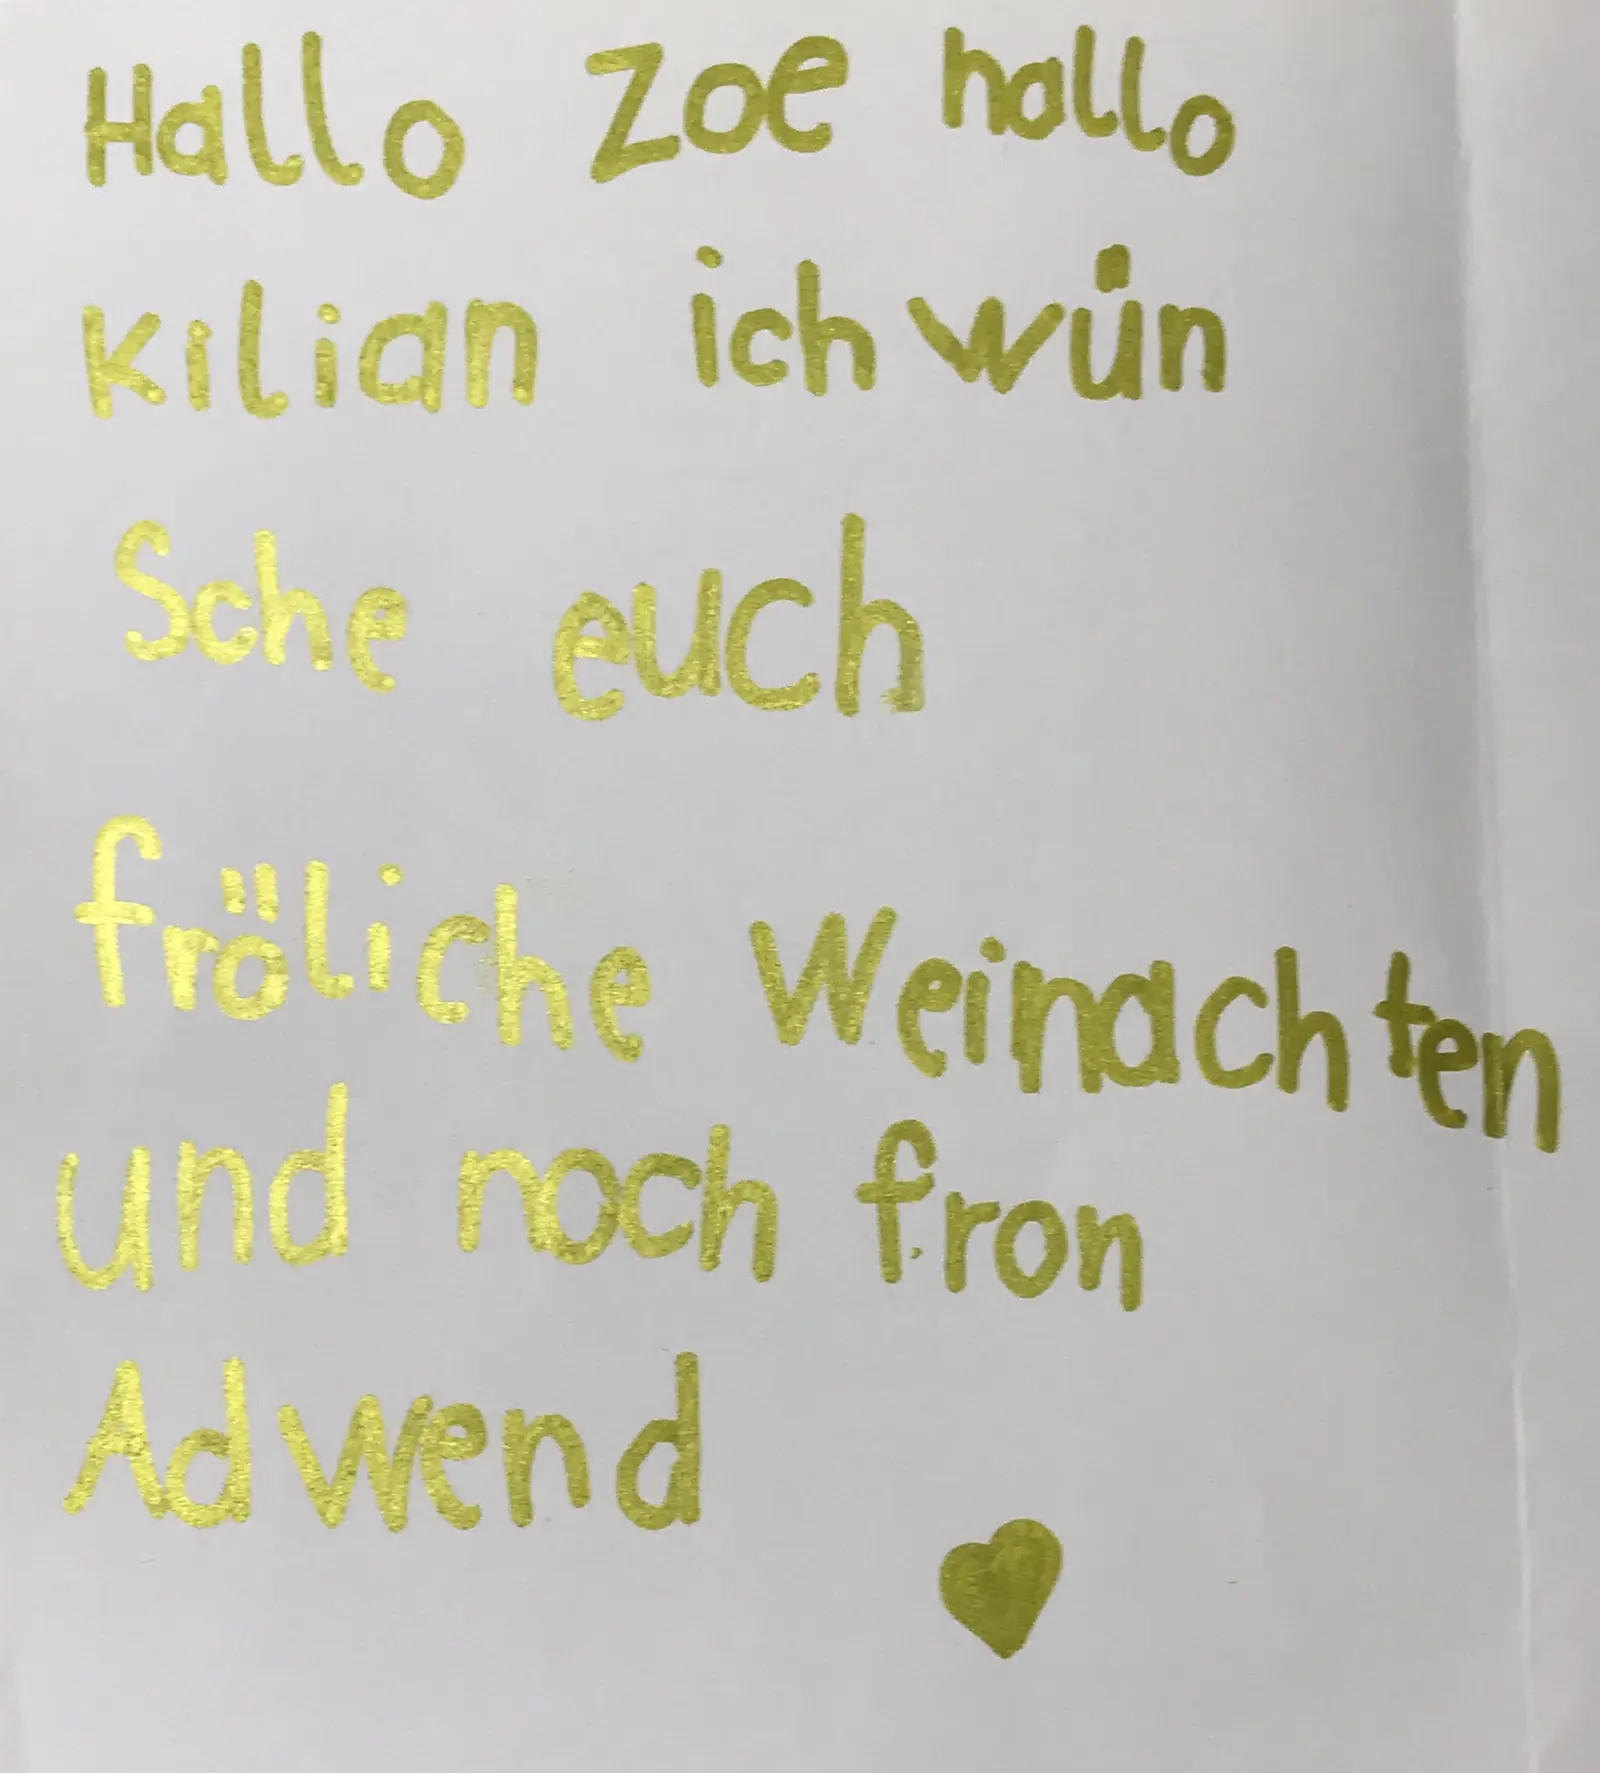 Hallo Zoe hallo
Kilian ich wün
Sche euch
fröliche Weinachten
und noch fron
Adwend